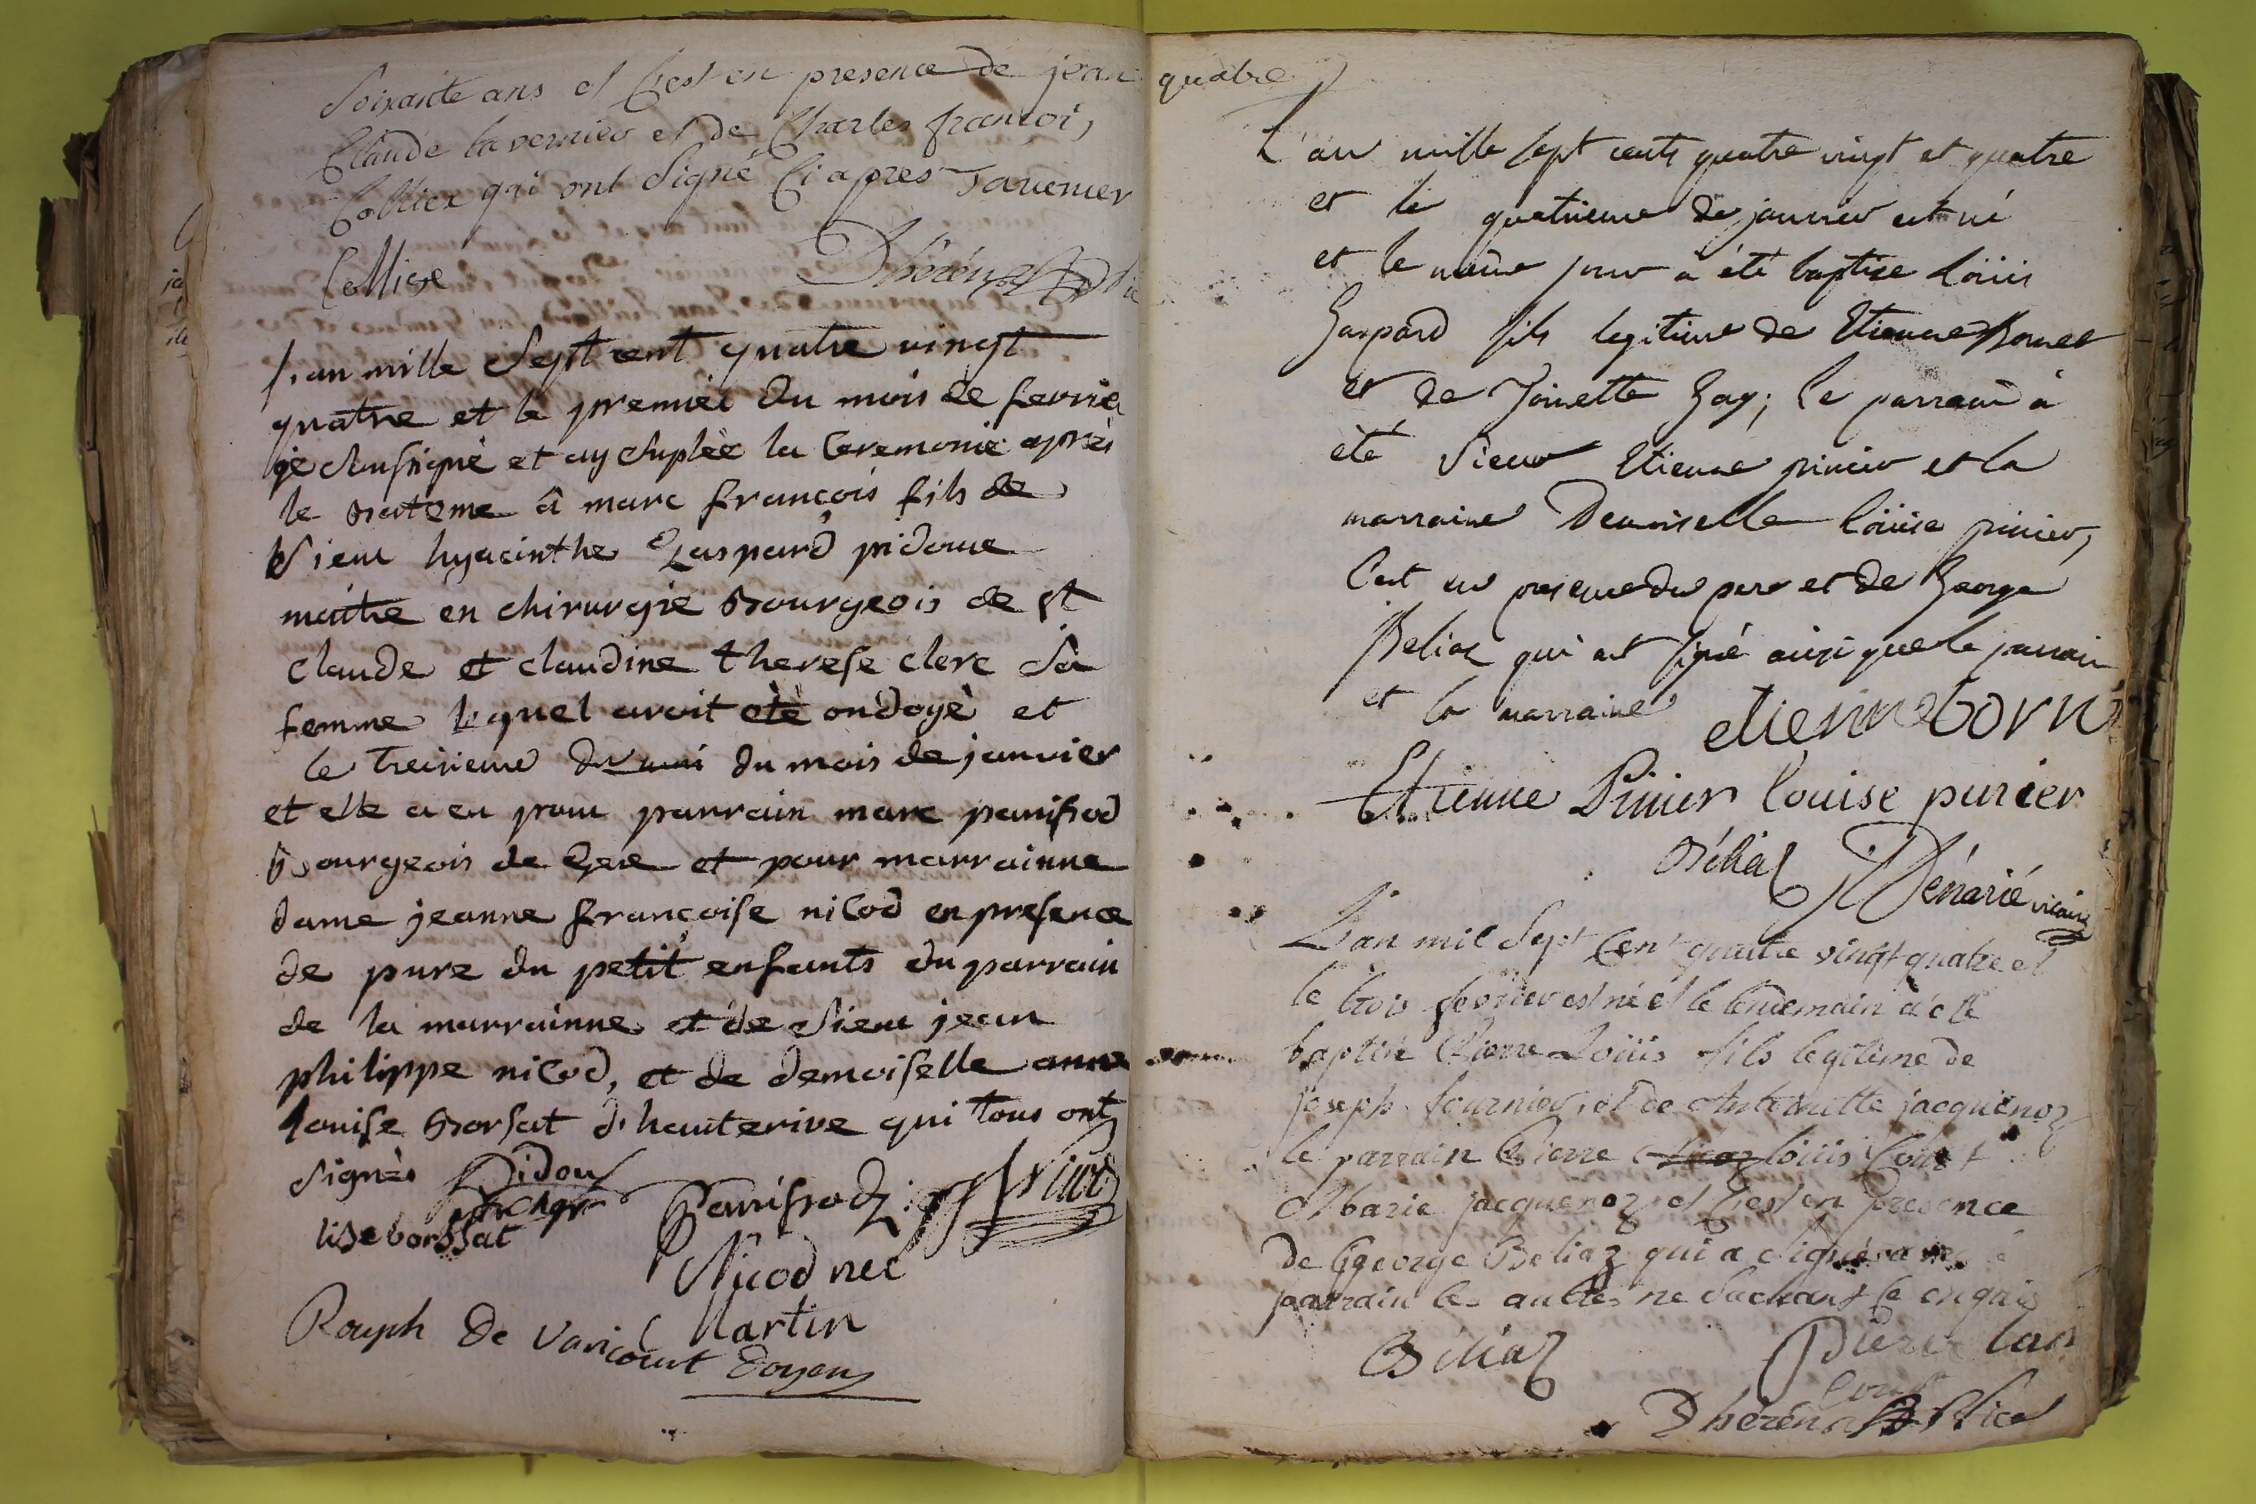 Soixante ans et C'est en presence de jean
Claude tavernier et de Charles françois
Colliex qui ont Signé Ci apres Tavernier
Colliex Dhérens
L'an mille Sept cent quatre vingt
quatre et le premier du mois de fevrie
je soussigné et ay suplèe la Ceremonie après
le bateme a marc françois fils de
Sieur hyacinthe Gaspard pidoux
maitre en chirurgie bourgeois de st
claude et claudine therese clerc Sa
femme lequel avoit etè ondoyè et
le treizieme du mois de janvier
et elle a eu pour parrain marc panissod
bourgeois de Gex et pour marrainne
dame jeanne françoise nicod en presence
de pure du petit enfants du parrain
de la marrainne et de Sieur jean
philippe nicod, et de demoiselle anne
louise borsat d'hauterive qui tous ont
Signès Pidoux
lise borssat Panissod Nicod
Nicod neé
Martin
Rouph de Varicourt doyen
quatre
L'an mille sept cents quatre vingt et quatre
et le quatrieme de janvier est né
et le même jour a été baptise Loüis
Gaspard fils legitime de Etienne Bornet
et de Joinette Gay; le parrain a
été Sieur Etienne pinier et la
marraine Demoiselle loüise pinier,
C'est en presence du pere et de George
Beliaz qui ont signé ainsi que le parrain
et la marraine etienne born
Etienne Pinier louise purier
Béliaz Dénarié vicaire
L'an mil Sept Cent quatre vingt quatre et
le trois fevrier est né et le lendemain a eté
baptisé Pierre Loüis fils legitime de
joseph fournier, et de Antoinette jacquenoz
le parrain Pierre loüis Coust
Marie jacquenoz et C'est en presence
de George Beliaz qui a signé avec le
parrain les autres ne Sachant ce enquis
Béliaz Piere lui
Coust
Dhérens Vice